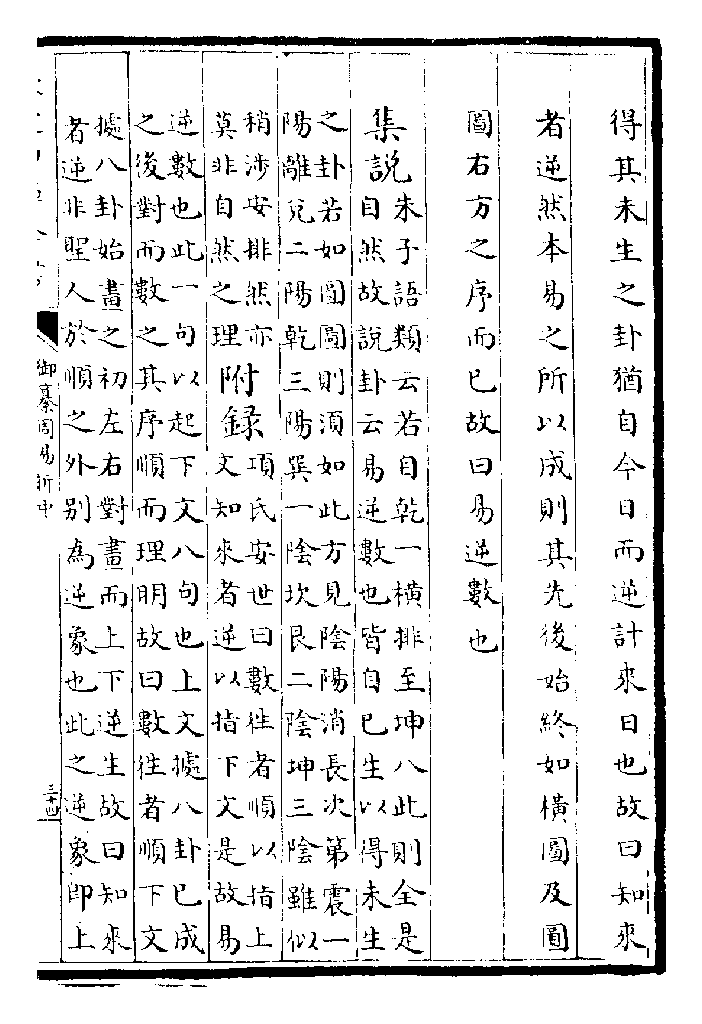 得其未生之卦猶自今日而逆計來日也故曰知來
者逆然本易之所以成則其先後始終如橫圖及圓
圖右方之序而已故曰易逆數也
集說
朱子語類云若自乾一橫排至坤八此則全是
自然故說卦云易逆數也皆自已生以得未生
之卦若如圓圖則須如此方見陰陽消長次第震一
陽離兌二陽乾三陽巽一陰坎艮二陰坤三陰雖似
稍涉安排然亦
莫非自然之理
附録
項氏安世曰數徃者順以指上
文知來者逆以指下文是故易
逆數也此一句以起下文八句也上文據八卦已成
之後對而數之其序順而理明故曰數徃者順下文
據八卦始畫之初左右對畫而上下逆生故曰知來
者逆非聖人於順之外别為逆象也此之逆象即上
御纂周易折中
三十四